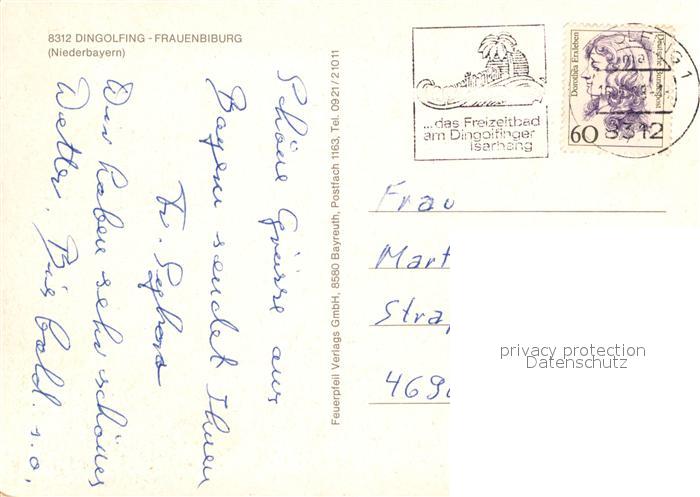 8312 DINGOLFING - FRAUENBIBURG
(Niederbayern)
Schöne Grüsse aus
Bayern sendet Ihnen
Fr.
Wir haben sehr schönes
Wetter. Bis bald. s.o.
Feuerpfeil Verlags GmbH, 8580 Bayreuth, Postfach 1163, Tel. 0921/21011
...das Freizeitbad
am Dingolfinger
Isarhang
Dorothea Erxleben
Deutsche Bundespost
60
8312
Frau
Mart
Straß
469
privacy protection
Datenschutz